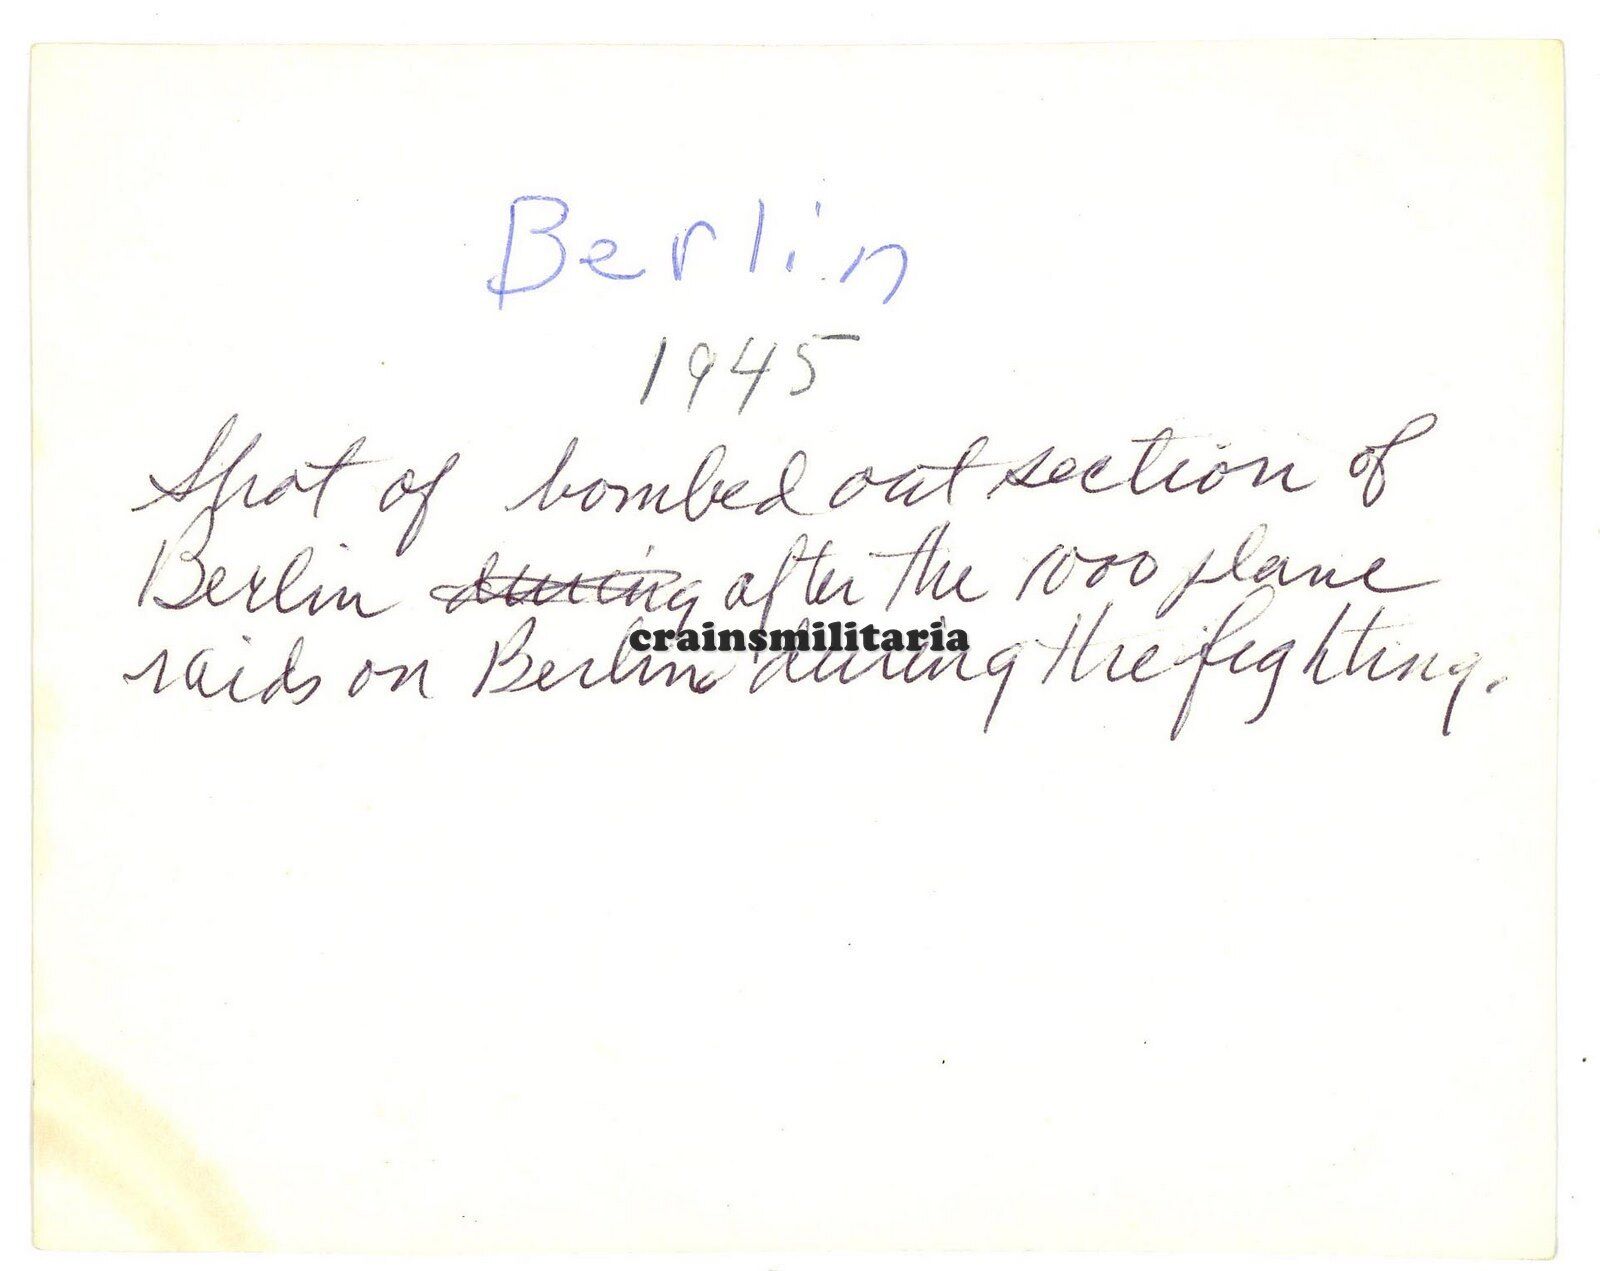 Berlin
1945
Shot of bombed out section of
Berlin during after the 1000 plane
crainsmilitaria
raids on Berlin during the fighting.